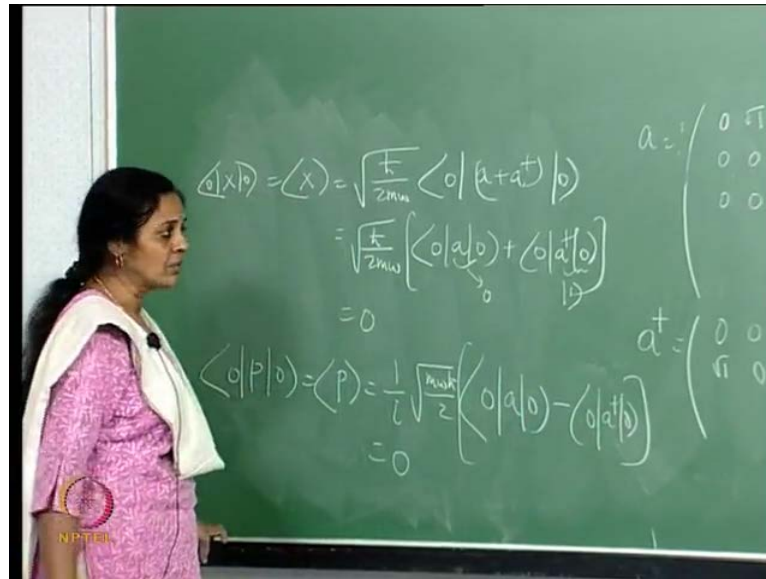 ⟨0|x|0⟩ = ⟨x⟩ = √(ħ/2mω) ⟨0|(a+a†)|0⟩
= √(ħ/2mω) [⟨0|a|0⟩ + ⟨0|a†|0⟩]
0 |1⟩
= 0
⟨0|p|0⟩ = ⟨p⟩ = 1/i √(mωħ/2) [⟨0|a|0⟩ − ⟨0|a†|0⟩]
= 0
a = ( 0 √1
0 0
0 0
a† = ( 0 0
√1 0
NPTEL